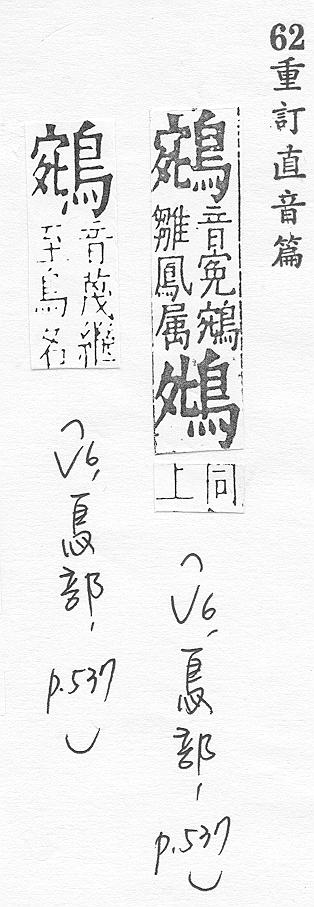 62重訂直音篇
鵷
音寃鵷
雛鳳属
䳃
同
上
(V6,鳥部,
p.537)
音茂繼
至鳥名
(V6,鳥部,
p.537)